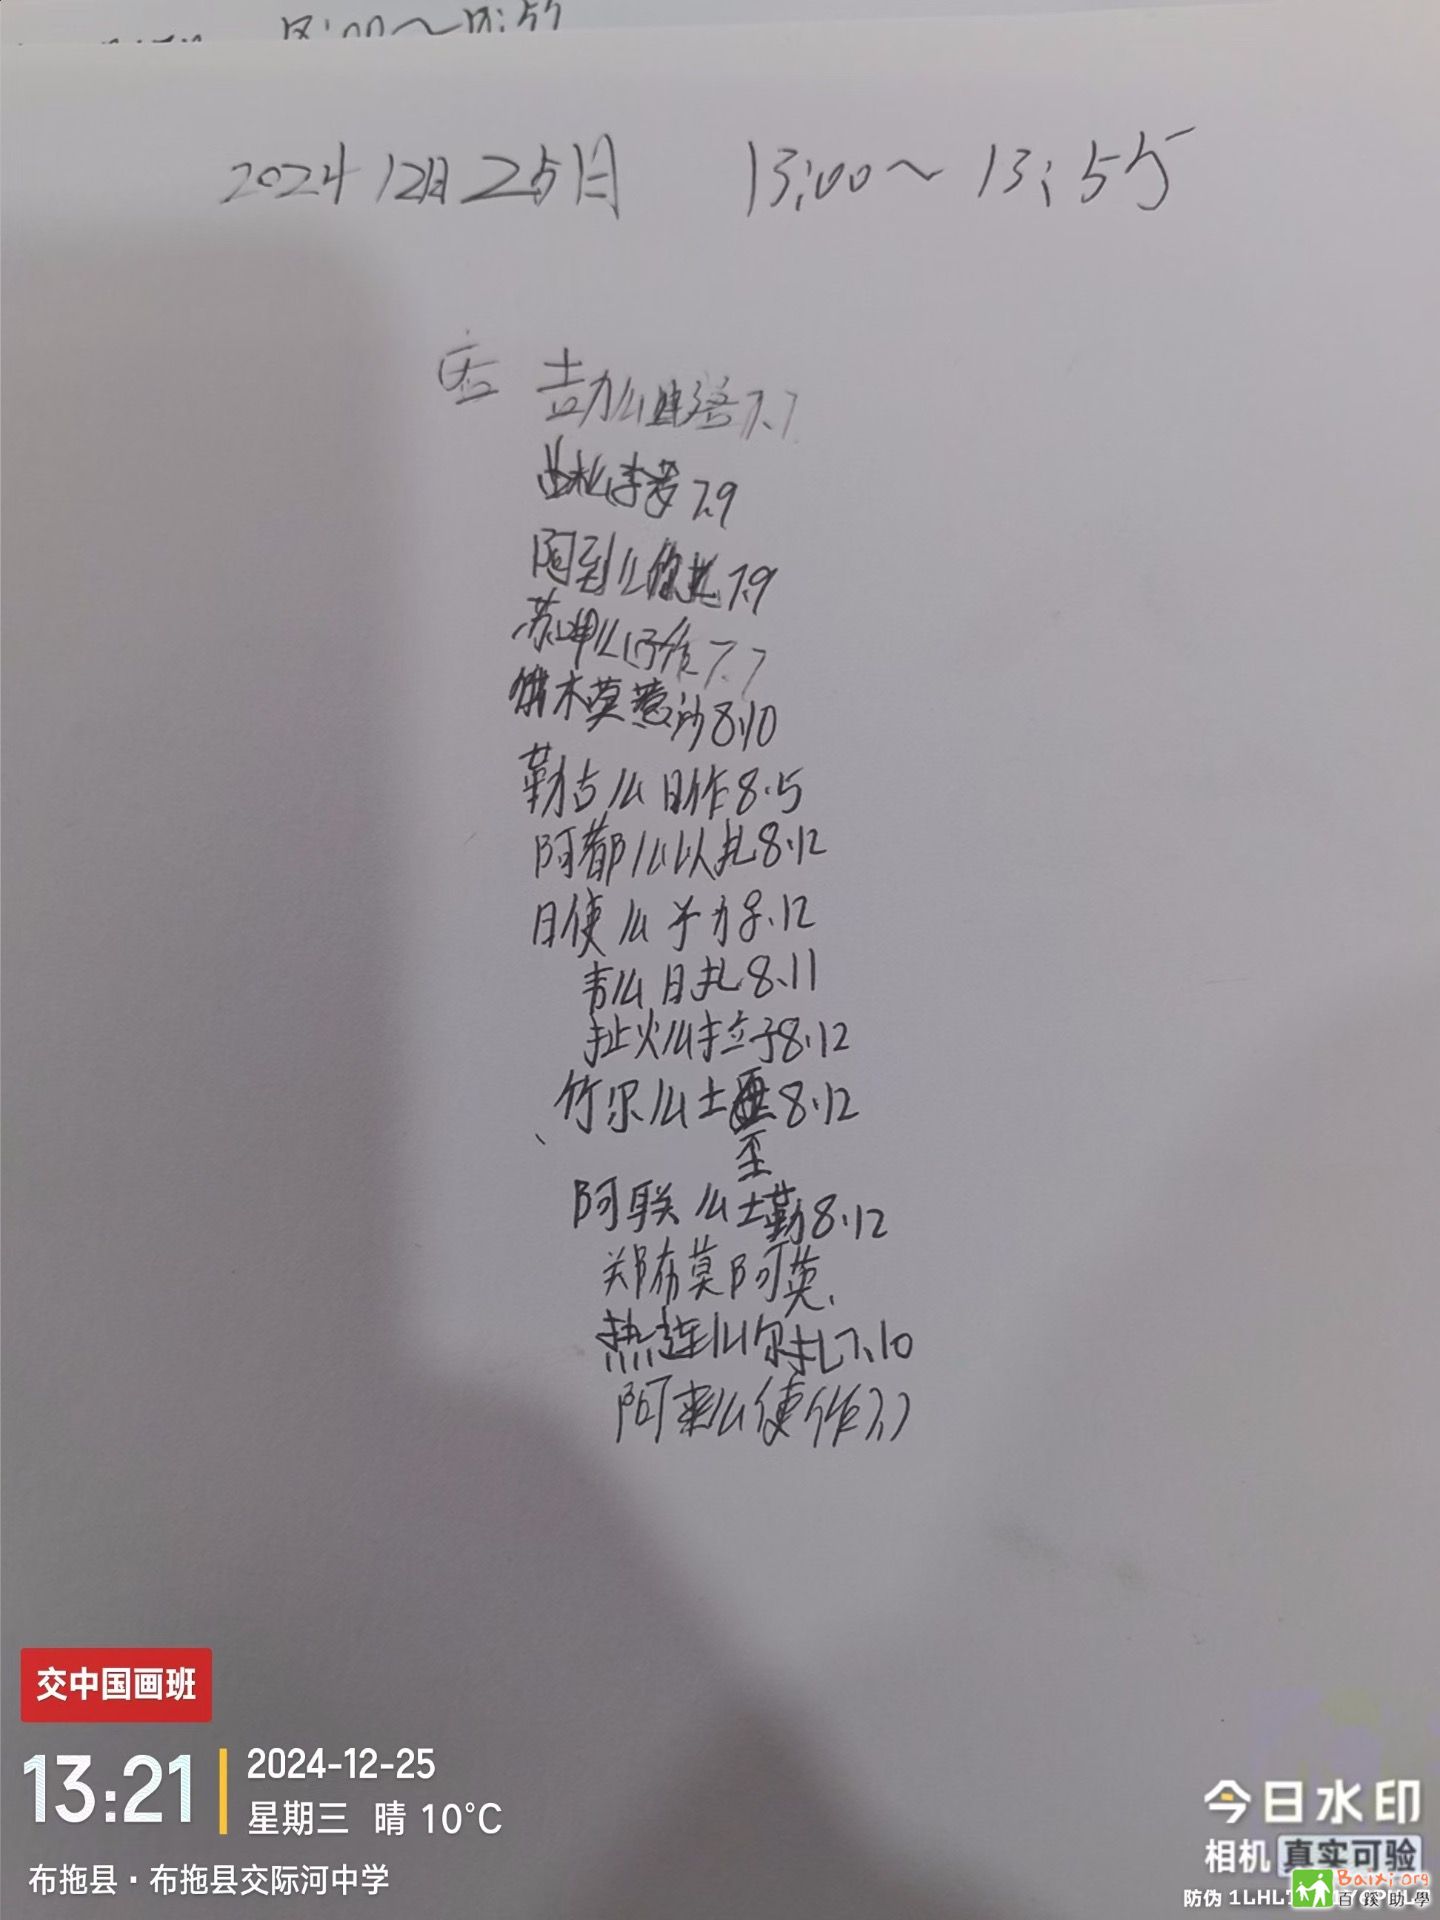 2024 12月25日 13:00～13:55
吉力么 7.7
7.9
阿 么 7.9
苏呷么 7.7
木莫惹 8.10
勒古么日作8.5
阿都么以扎8.12
日使么子力8.12
么日扎8.11
扯火么拉子8.12
竹尔么土 8.12
阿联么土勤8.12
郑布莫阿英
热连么尔扎7.10
阿来么使作7.7
交中国画班
13:21
2024-12-25
星期三 晴 10°C
布拖县·布拖县交际河中学
今日水印
相机 真实可验
防伪 1LHL
Baixi.org
百蹊助學